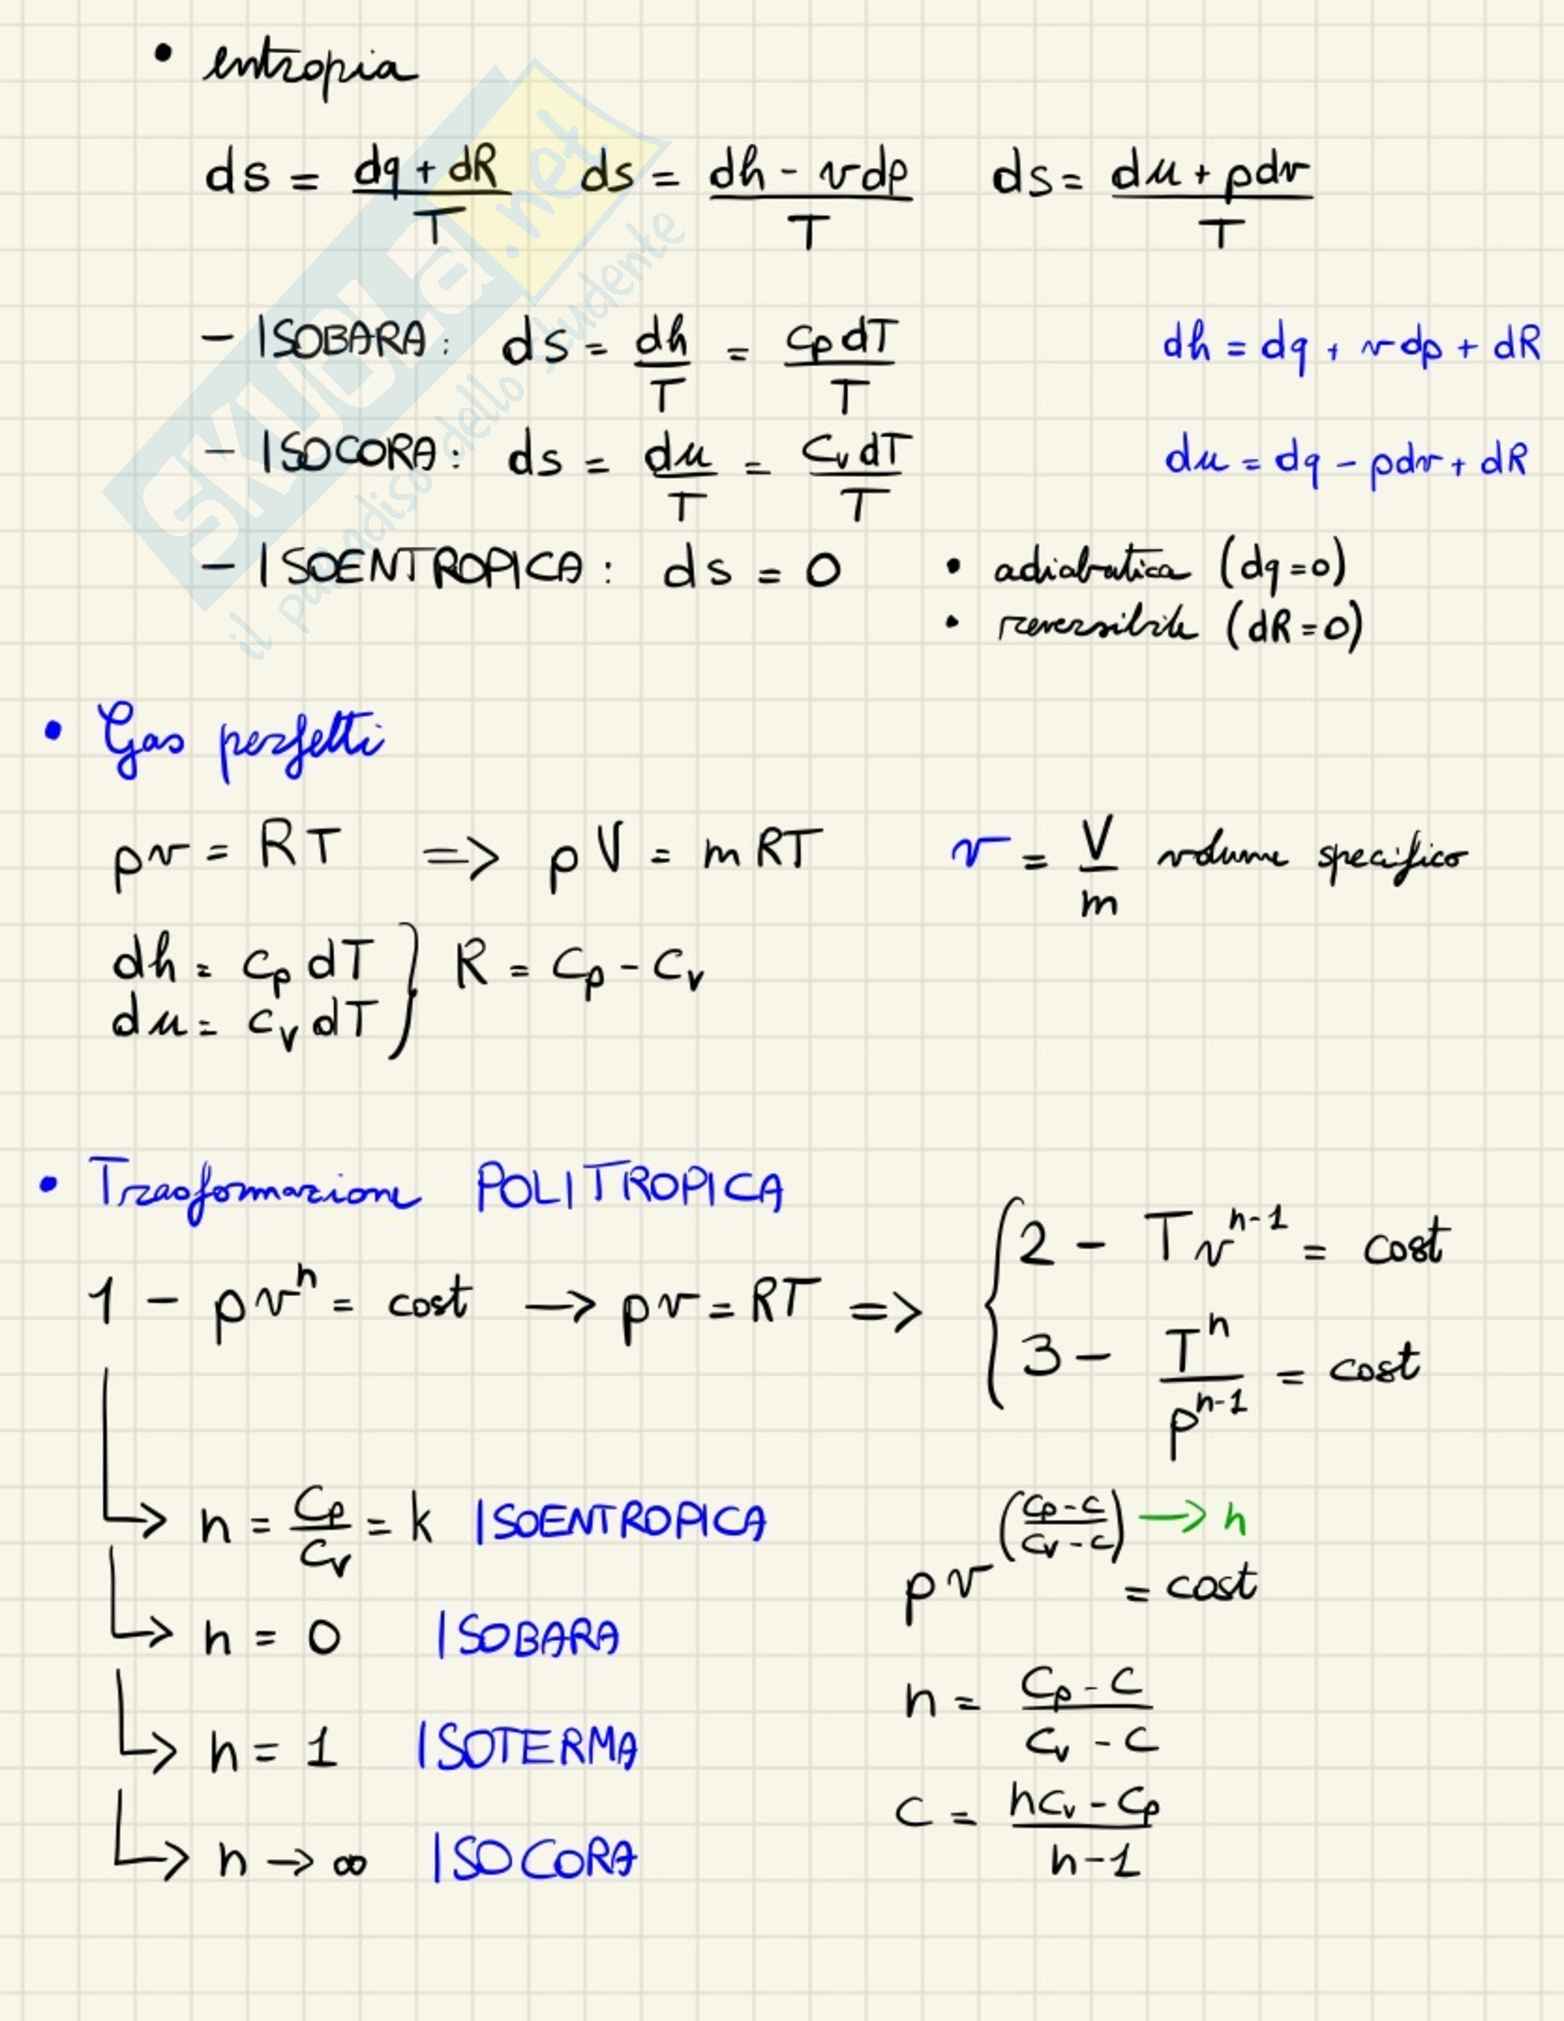 • entropia
ds = (dq + dR)/T    ds = (dh - vdp)/T    ds = (du + pdv)/T
- ISOBARA: ds = dh/T = cp dT/T    dh = dq + vdp + dR
- ISOCORA: ds = du/T = Cv dT/T    du = dq - pdv + dR
- ISOENTROPICA: ds = 0    • adiabatica (dq=0)
• reversibile (dR=0)
• Gas perfetti
pv = RT => pV = mRT    v = V/m volume specifico
dh = cp dT } R = Cp - Cv
du = cv dT
• Trasformazione POLITROPICA
1 - pv^n = cost → pv = RT => { 2 - Tv^(n-1) = cost
3 - T^n/p^(n-1) = cost
n = Cp/Cv = k ISOENTROPICA    pv^((Cp-C)/(Cv-C)) → n = cost
n = 0 ISOBARA
n = (Cp - C)/(Cv - C)
n = 1 ISOTERMA
C = (nCv - Cp)/(n-1)
n → ∞ ISOCORA
SKUOLa.net
il paradiso dello studente